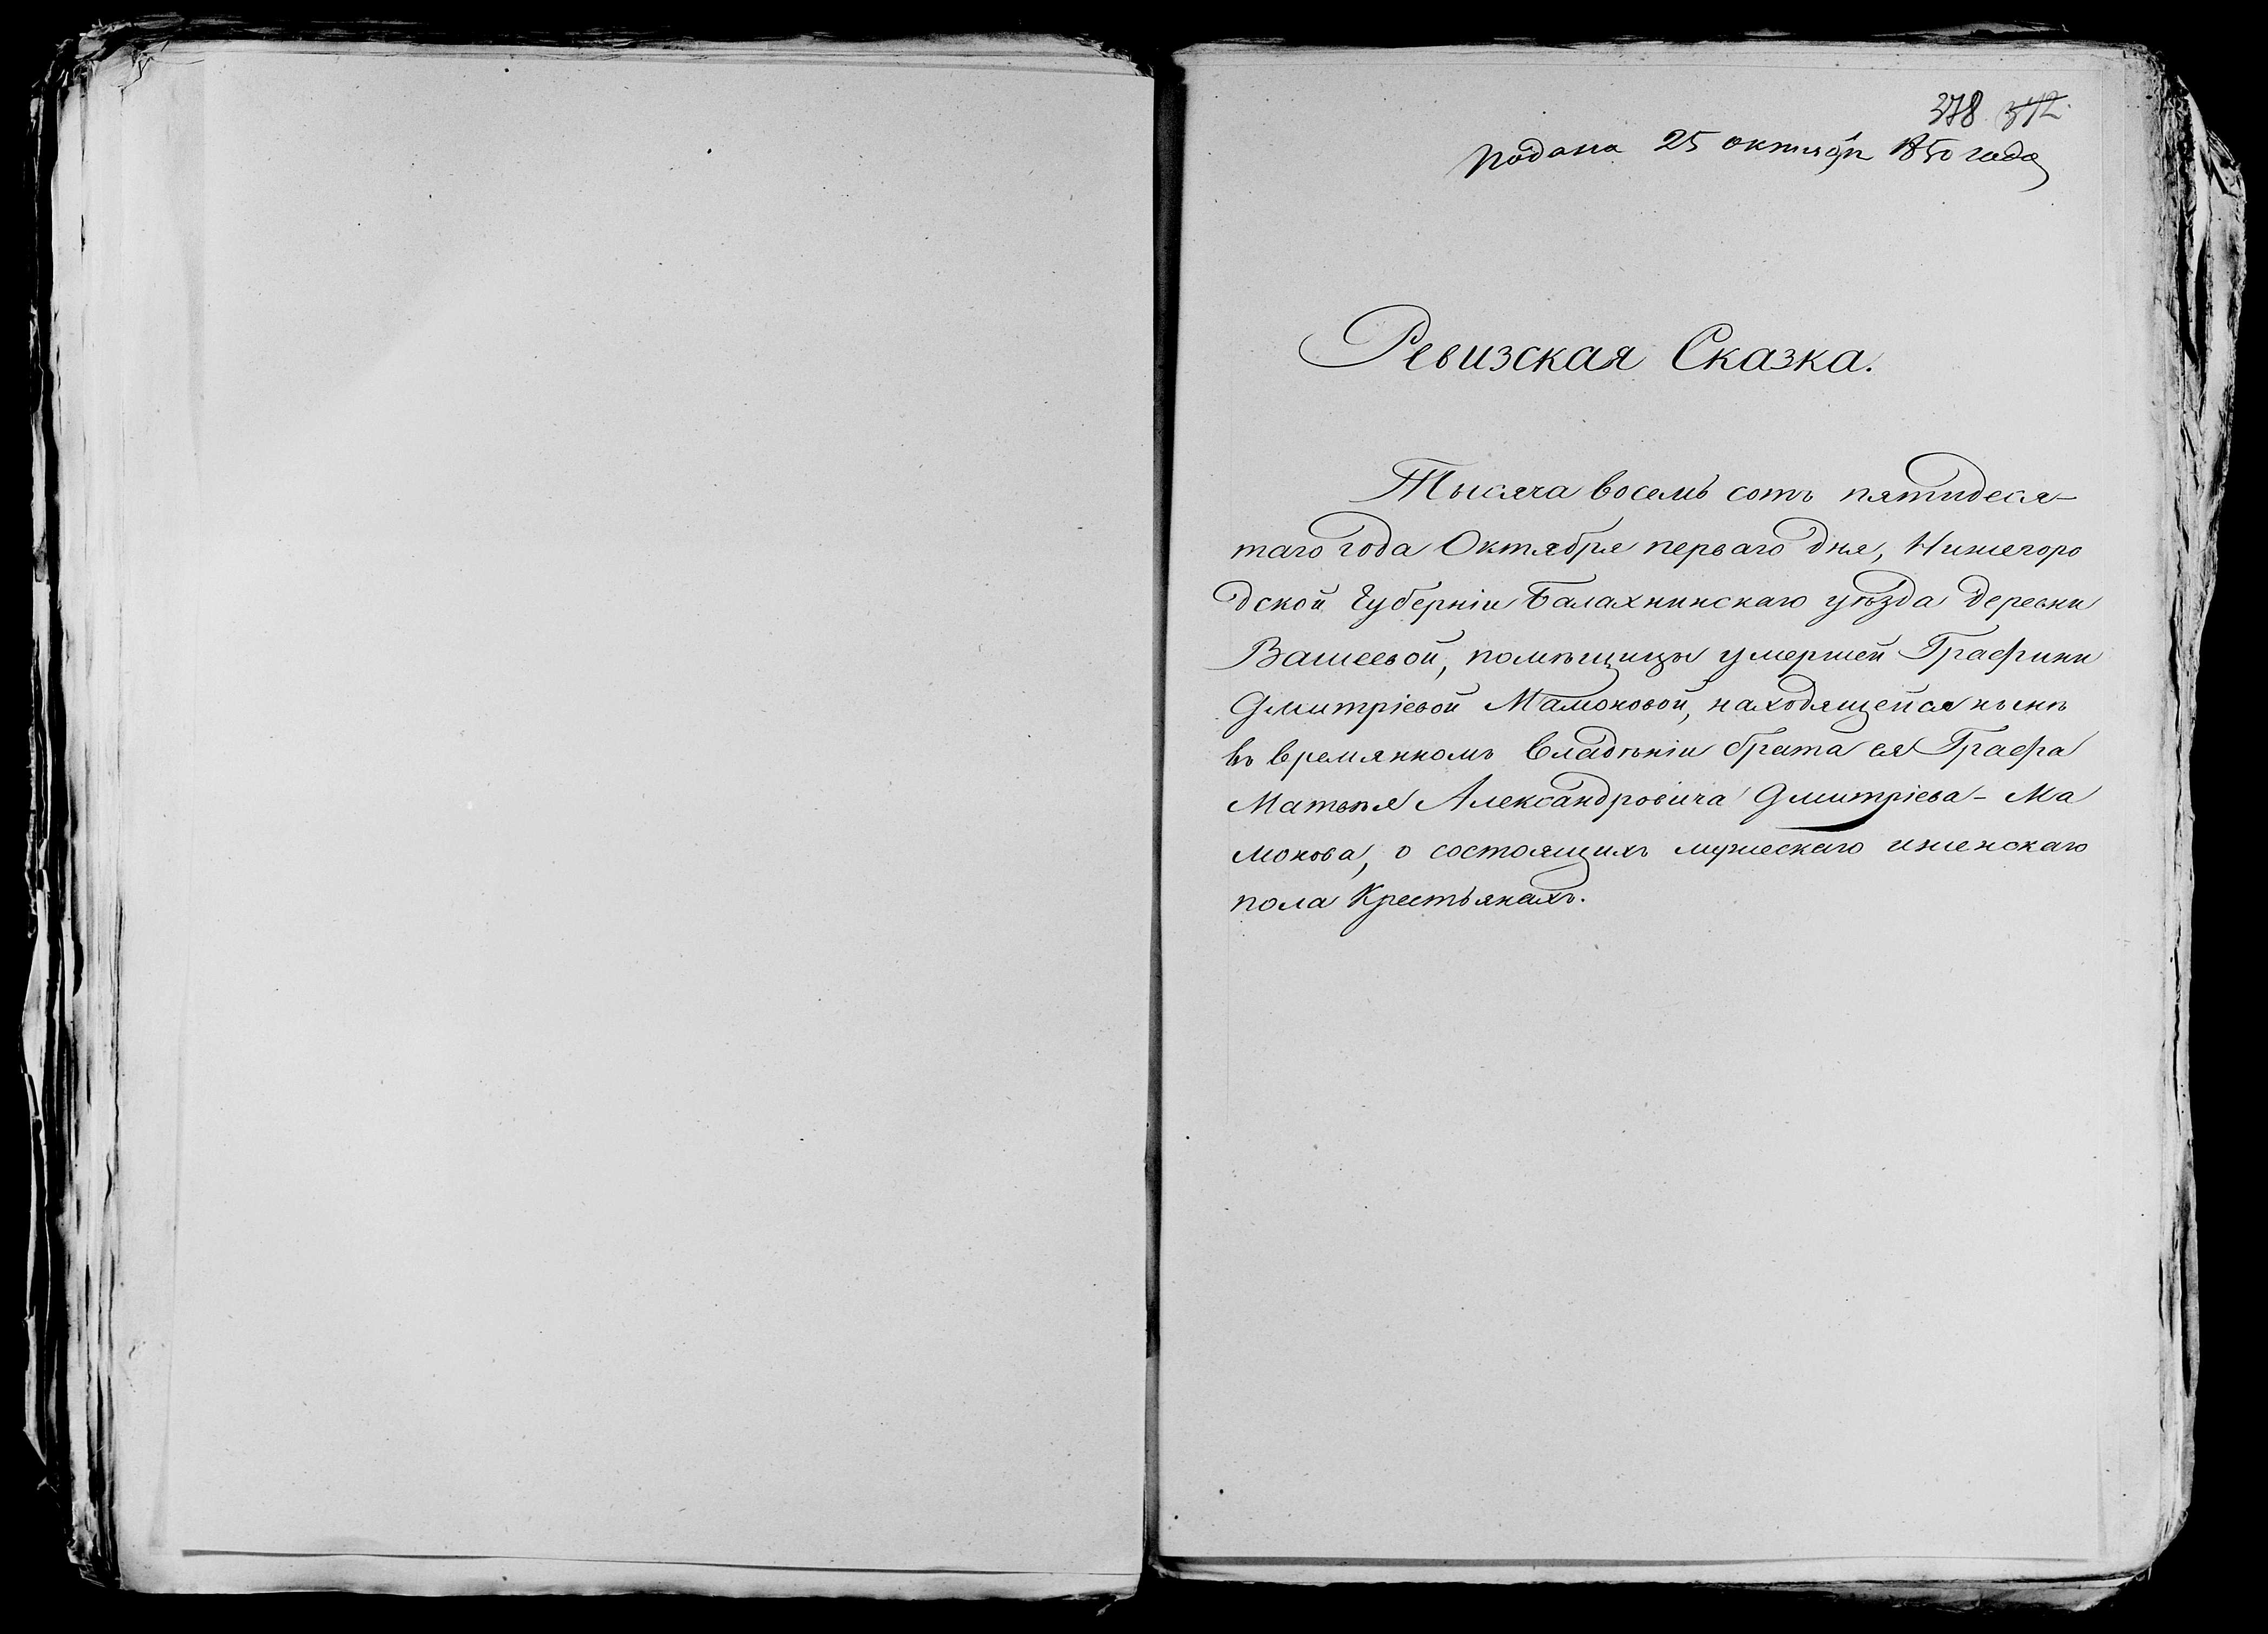 378 312.
подана 25 октября 1850 года
Ревизская Сказка.
Тысяча восемь сотъ пятидеся-
таго года Октября перваго дня, Нижегоро
дской Губерніи Балахнинскаго уѣзда деревни
помѣщицы умершей Графини
Дмитріевой Мамоновой, находящейся нынѣ
въ времянномъ владѣніи брата ея Графа
Матвѣя Александровича Дмитріева-Ма
монова, о состоящихъ мужескаго и женскаго
пола Крестьянахъ.